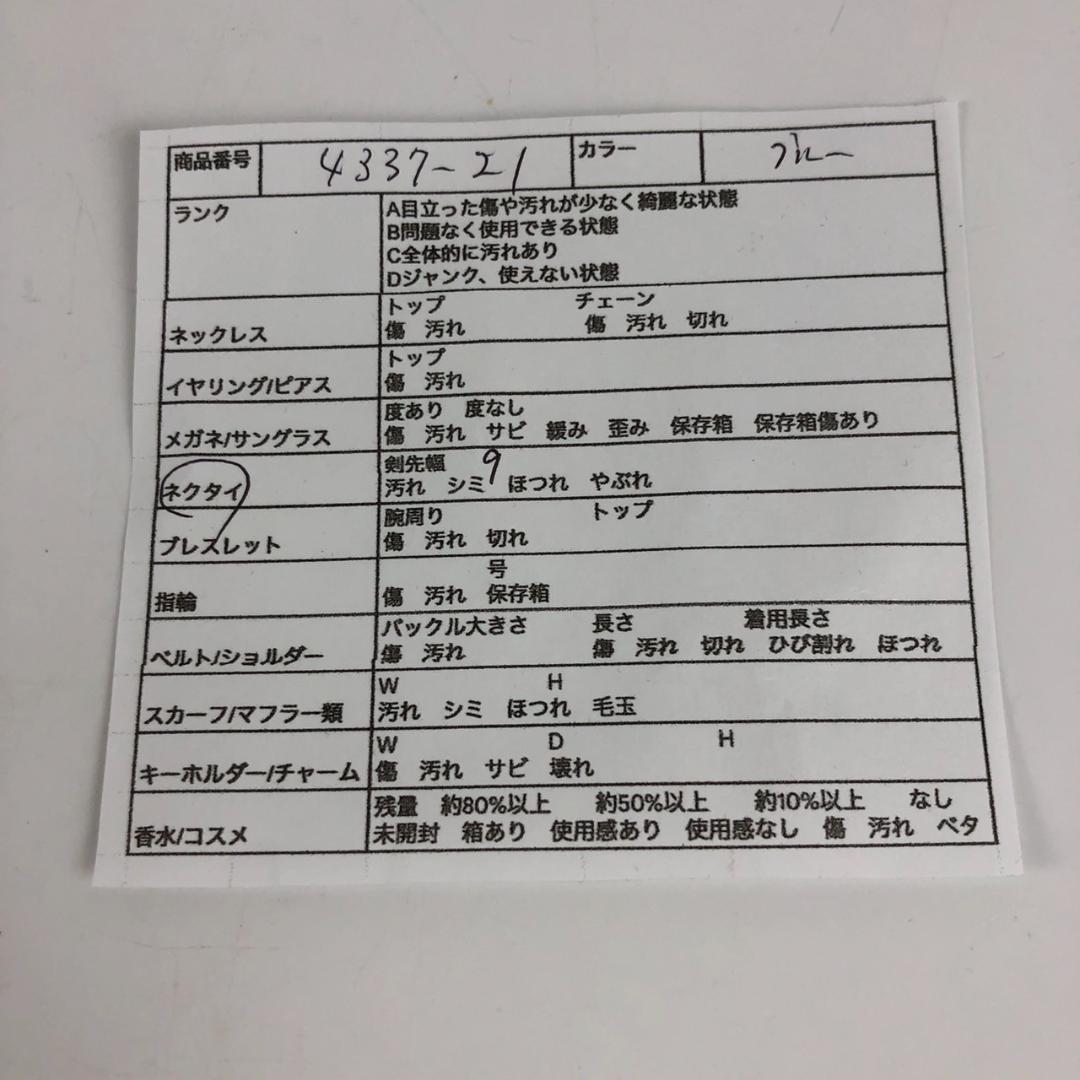 商品番号 4337-21 カラー ブルー
ランク
A目立った傷や汚れが少なく綺麗な状態
B問題なく使用できる状態
C全体的に汚れあり
Dジャンク、使えない状態
トップ チェーン
ネックレス 傷 汚れ 傷 汚れ 切れ
トップ
イヤリング/ピアス 傷 汚れ
度あり 度なし
メガネ/サングラス 傷 汚れ サビ 緩み 歪み 保存箱 保存箱傷あり
剣先幅 9
ネクタイ 汚れ シミ ほつれ やぶれ
腕周り トップ
ブレスレット 傷 汚れ 切れ
号
指輪 傷 汚れ 保存箱
バックル大きさ 長さ 着用長さ
ベルト/ショルダー 傷 汚れ 傷 汚れ 切れ ひび割れ ほつれ
W H
スカーフ/マフラー類 汚れ シミ ほつれ 毛玉
W D H
キーホルダー/チャーム 傷 汚れ サビ 壊れ
残量 約80%以上 約50%以上 約10%以上 なし
香水/コスメ 未開封 箱あり 使用感あり 使用感なし 傷 汚れ ベタ